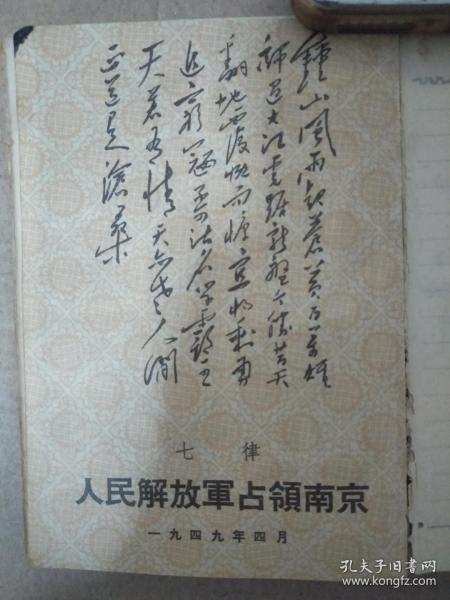 鍾山風雨起蒼黃百萬雄
師過大江虎踞龍盤今勝昔天
翻地覆慨而慷宜將剩勇
追窮寇不可沽名學霸王
天若有情天亦老人間
正道是滄桑
七律
人民解放軍占領南京
一九四九年四月
孔夫子旧书网
www.kongfz.com